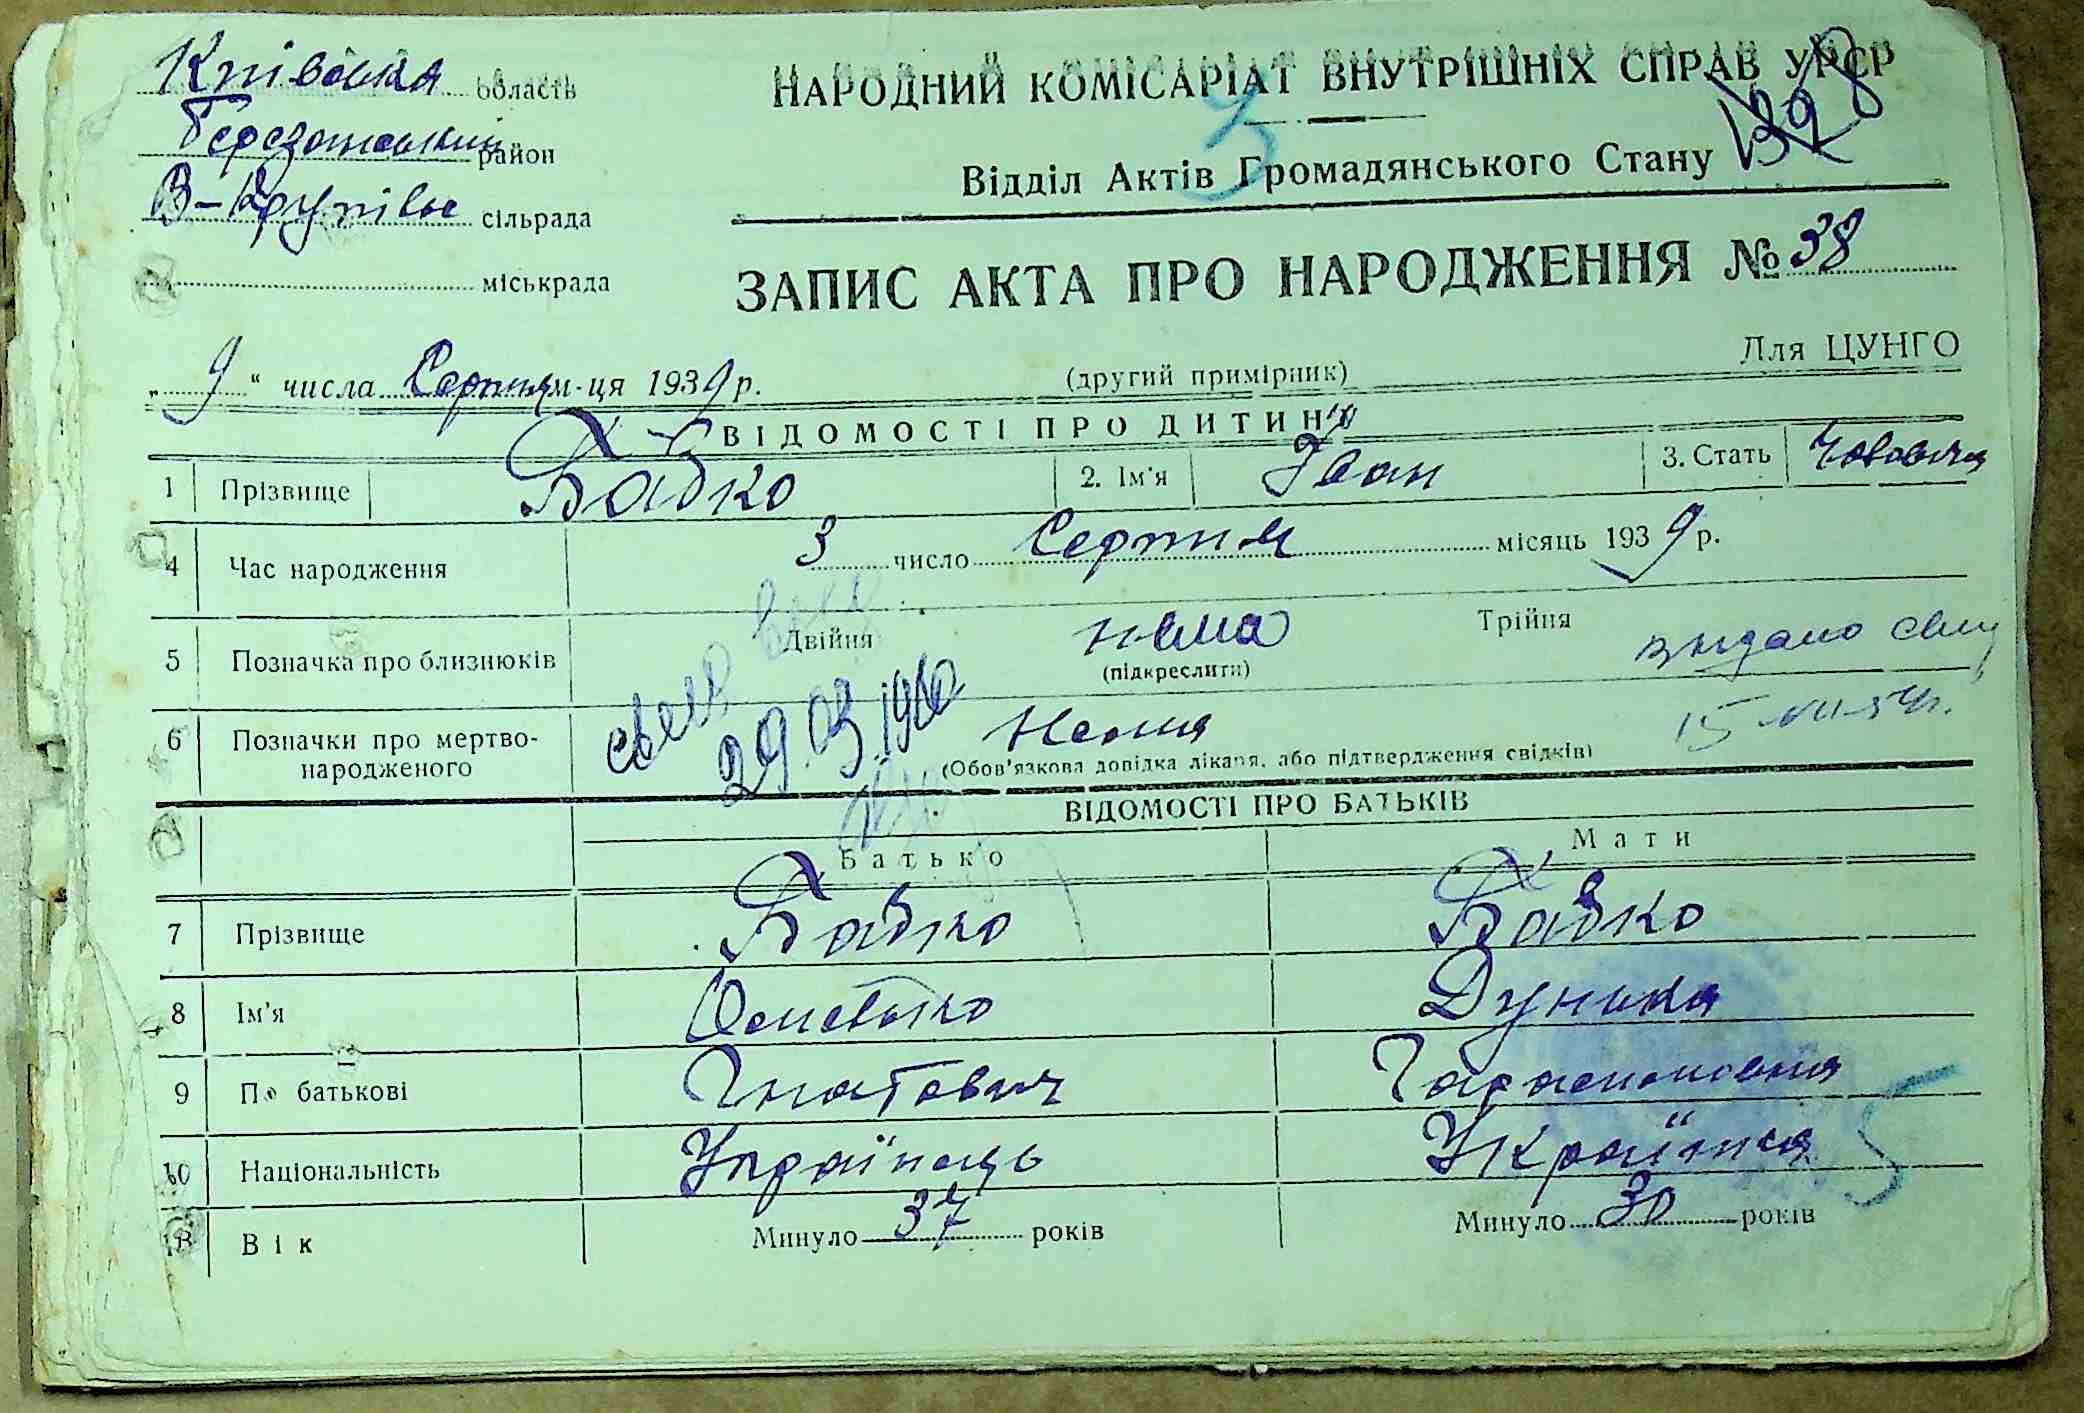 Київська область
НАРОДНИЙ КОМІСАРІАТ ВНУТРІШНІХ СПРАВ УРСР
3
Березанський район
Відділ Актів Громадянського Стану
В-Крупівс сільрада
міськрада
ЗАПИС АКТА ПРО НАРОДЖЕННЯ № 38
Для ЦУНГО
„ 9 “ числа Серпня м-ця 1939 р.
(другий примірник)
ВІДОМОСТІ ПРО ДИТИНУ
1 Прізвище Бабко 2. Ім'я Іван 3. Стать Чоловіча
4 Час народження 3 число Серпня місяць 1939 р.
5 Позначка про близнюків Двійня нема Трійня
(підкреслити)
видано
6 Позначки про мертво-
народженого
Нема
(Обов'язкова довідка лікаря, або підтвердження свідків)
29.03.1960
15
ВІДОМОСТІ ПРО БАТЬКІВ
Батько Мати
7 Прізвище Бабко Бабко
8 Ім'я Дунька
9 По батькові Гнатович
10 Національність Українець Українка
5
Вік Минуло 37 років Минуло 30 років